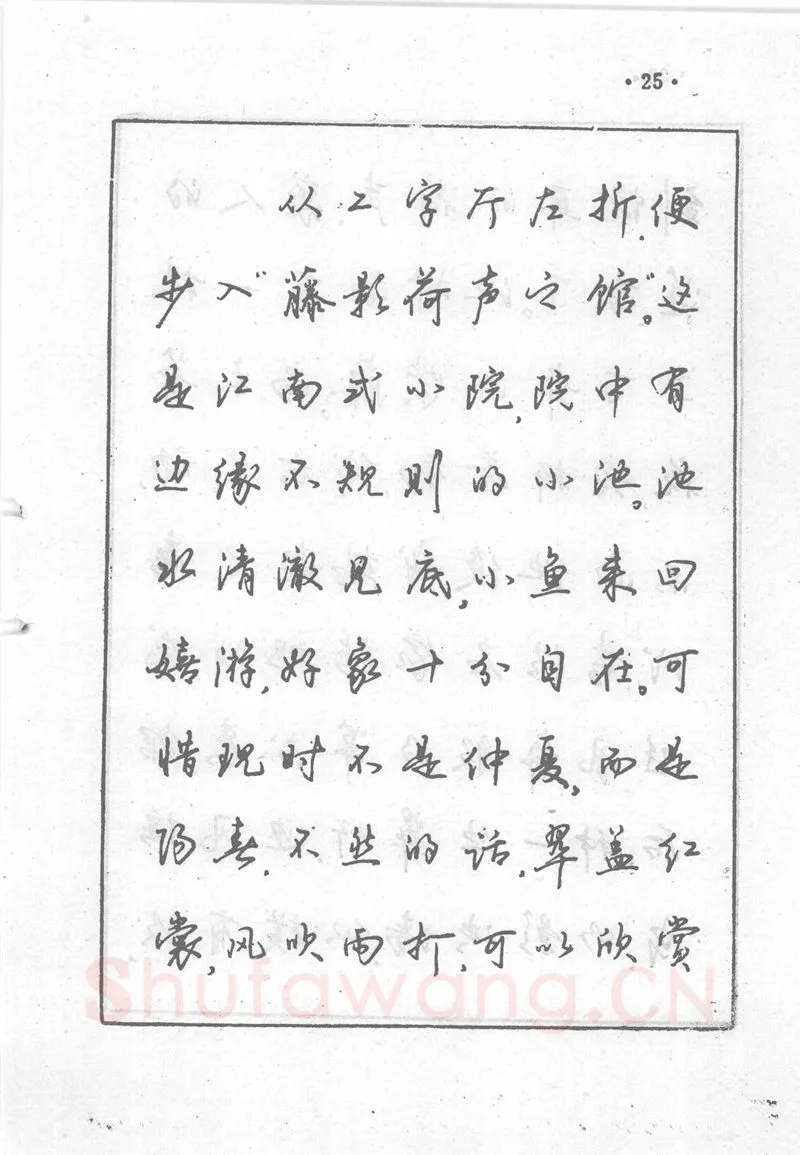 ·25·
从工字厅左折,便
步入"藤影荷声之馆"。这
是江南式小院,院中有
边缘不规则的小池。池
水清澈见底,小鱼来回
嬉游,好象十分自在。可
惜现时不是仲夏,而是
阳春,不然的话,翠盖红
裳,风吹雨打,可以欣赏
Shufawang.CN